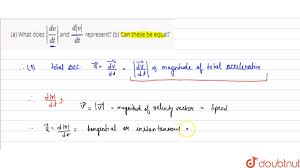 (a) What does |dv/dt| and d|v|/dt represent? (b) Can these be equal?
∴ (a) total acc. a⃗ = dv⃗/dt = |dv⃗/dt| is magnitude of total acceleration
∴ d|v|/dt, v⃗ = |v⃗| = magnitude of velocity vector = speed
∵ a⃗ = d|v|/dt = tangential or instantaneous
doubtnut